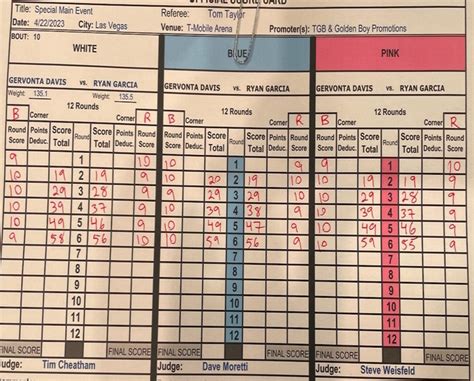 OFFICIAL SCORE CARD
Title: Special Main Event Referee: Tom Taylor
Date: 4/22/2023 City: Las Vegas Venue: T-Mobile Arena Promoter(s): TGB & Golden Boy Promotions
BOUT: 10
WHITE BLUE PINK
GERVONTA DAVIS vs. RYAN GARCIA GERVONTA DAVIS vs. RYAN GARCIA GERVONTA DAVIS vs. RYAN GARCIA
Weight: 135.1 Weight: 135.5
12 Rounds 12 Rounds 12 Rounds
B Corner Corner R B Corner Corner R B Corner Corner R
Round Score Points Deduc. Score Total Round Score Total Points Deduc. Round Score Round Score Points Deduc. Score Total Round Score Total Points Deduc. Round Score Round Score Points Deduc. Score Total Round Score Total Points Deduc. Round Score
9 1 10 10 1 9 9 1 10
10 19 2 19 9 10 20 2 19 9 10 19 2 19 9
10 29 3 28 9 9 29 3 29 10 10 29 3 28 9
10 39 4 37 9 10 39 4 38 9 10 39 4 37 9
10 49 5 46 9 10 49 5 47 9 10 49 5 46 9
9 58 6 56 10 10 59 6 56 9 10 59 6 55 9
7 7 7
8 8 8
9 9 9
10 10 10
11 11 11
12 12 12
FINAL SCORE FINAL SCORE FINAL SCORE FINAL SCORE FINAL SCORE FINAL SCORE
Judge: Tim Cheatham Judge: Dave Moretti Judge: Steve Weisfeld